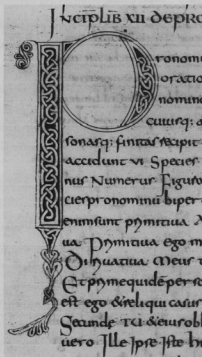 INCIP LIB XII DE PRO
PRonomin
oratio
nomine
cuiusq: a
sonasq: finitas recipit
accidunt vi Species
nus Numerus Figura
cies pronominū bipert
enim sunt primitiua A
ua. Primitiua ego m
Diriuatiua Meus t
Et prime quidē perso
est ego & reliqui casus
Secunde Tu & eius obl
uero Ille Ipse Iste h